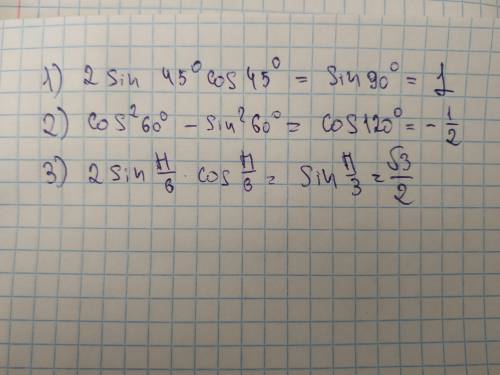 1) 2 sin 45° cos 45° = sin 90° = 1
2) cos² 60° - sin² 60° = cos 120° = - 1/2
3) 2 sin π/6 · cos π/6 = sin π/3 = √3/2